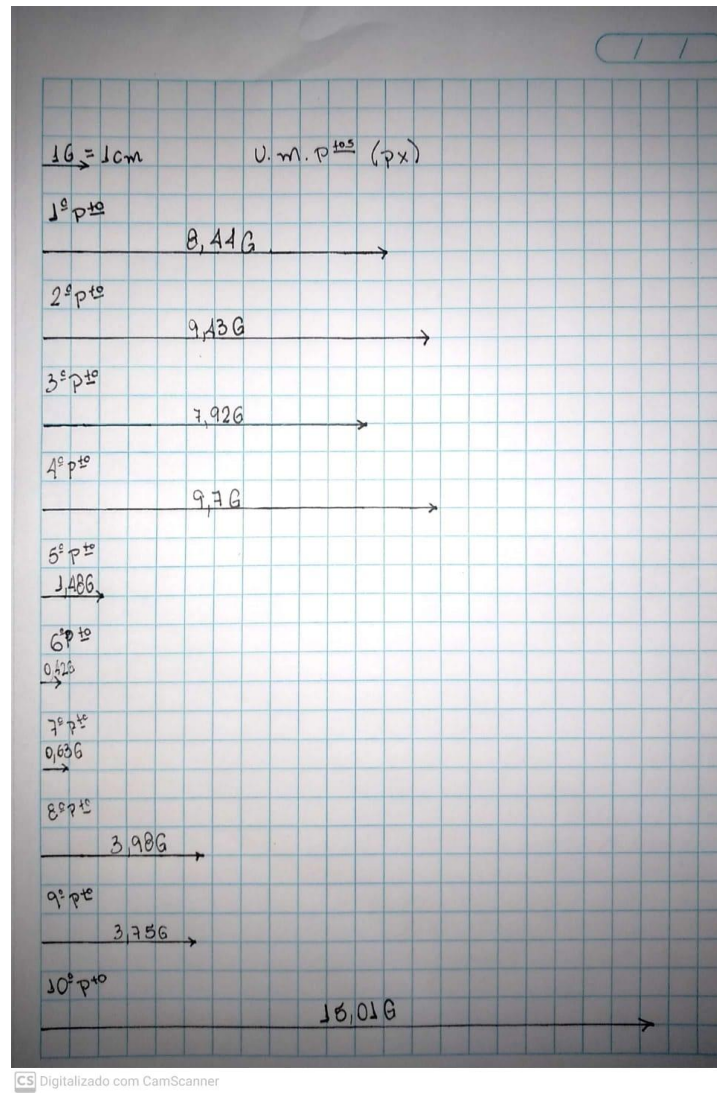 1G = 1cm
U.m. ptos (px)
1º pto
8,44G
2º pto
9,43G
3º pto
7,92G
4º pto
9,7G
5º pto
1,48G
6º pto
7º pto
0,63G
8º pto
3,98G
9º pto
3,75G
10º pto
15,01G
CS Digitalizado com CamScanner